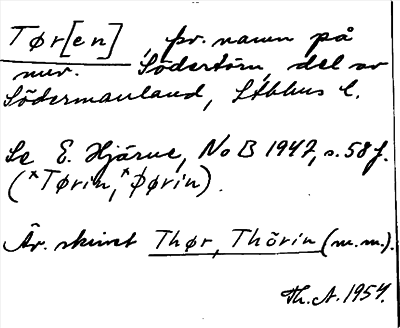 Tør[en], fsv. namn på
nuv. Södertörn, del av
Södermanland, Sthlms l.
Se E. Hjärne, NoB 1947, s. 58 f.
(*Tørin, *Þørin).
Äv. skrivet Thør, Thörin (m.m.).
Th.A. 1954.